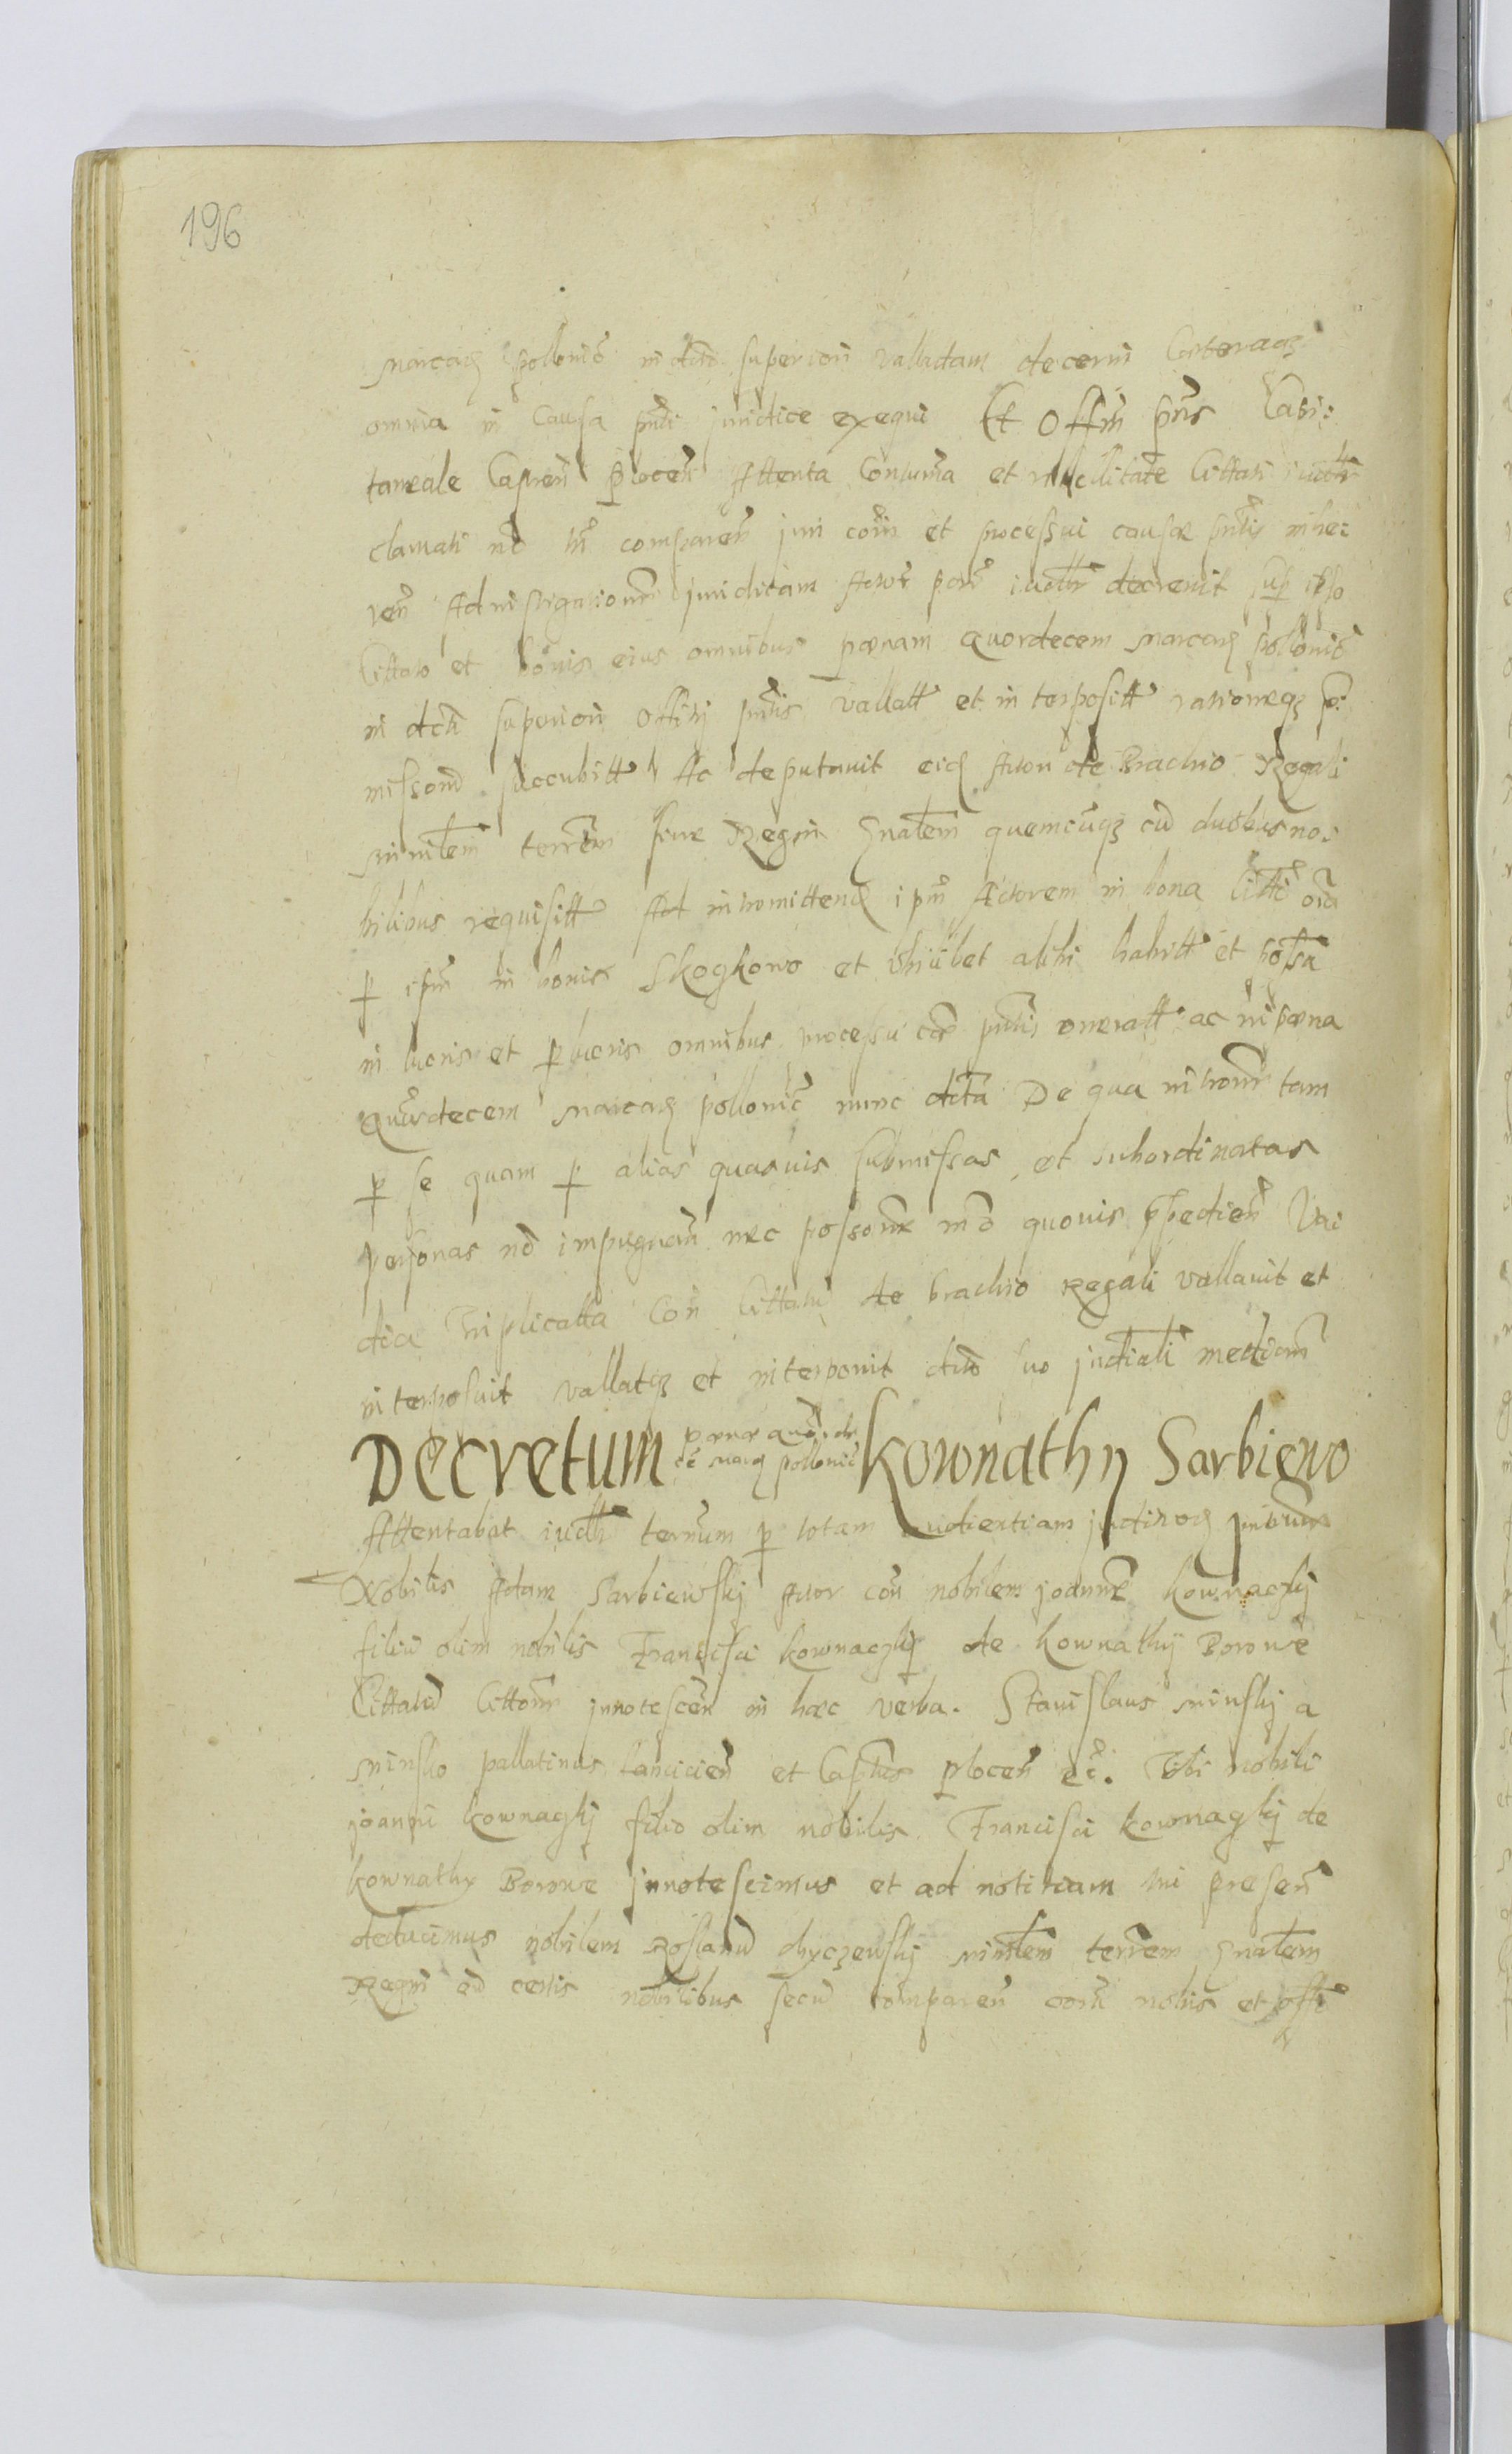 196
Marcarz pollonic in dicto superiori valladam decerni Coteraqz
omnia in Causa pnti juridice exequi Et Offm pns Capi:
taneale Capnen Plocen Attenta Contuma et Citati iudtr
clamati no tn comparen juri coïn et processui causæ pntis inhe:
ren Ad instigationem juridicam Actor parte iudtr decrevit sup ipso
Cittato et bonis eius omnibus pœnam Quordecem marcarz pollonic
in dcti superiori Offity pntis vallatt et in terpositt rationeqz p:
missor succubitt Ac deputavit eidz Actori de Brachio Regali
ministlem terrem sive Regni Gnalem quemcuqz cu duobus no:
bilibus requisitt Ad intromittendz ipm Actorem in bona Citti oia
p ipm in bonis Skogkowo et ubiilibet alibi habitt et possa
in lucris et plucris omnibus processu cæ pntis oneratt ac in pœna
Quordecem marcarz pollonic nunc dicta De qua introm tam
p se quam p alias quasvis submissas et subordinatas
personas no impugnan nec possonem mo quovis ppedien Va:
dia Triplicatta Con Cittatu de brachio Regali vallavit et
interposuit vallatqz et interponit dicto suo judtiali mediom
Decretum pœnæ Quord: ce marcz pollonic Kownathy Sarbiewo
Attentabat iudtr ternum p totam Audientiam judiciorz
Nobilis Adam Sarbiewskj Actor con nobilem joannem kownaczkj
filiu olim nobilis Francisci kownaczkj de kownathy Borowe
Cittatu Cittom jnnotescen in hæc verba. Stanislaus Minskj a
Minsko pallatinus Lancicien et Captnes Plocen ec. Tibi Nobili
joanni kownaczkj filio olim nobilis Francisci kownaczkj de
kownathy Borowe jnnotescimus et ad notitiam tui presen
deducimus nobilem Roslanu chyczewskj ministlem terrem gnalem
Regni ed certis nobilibus secu comparen coru nobis et offi